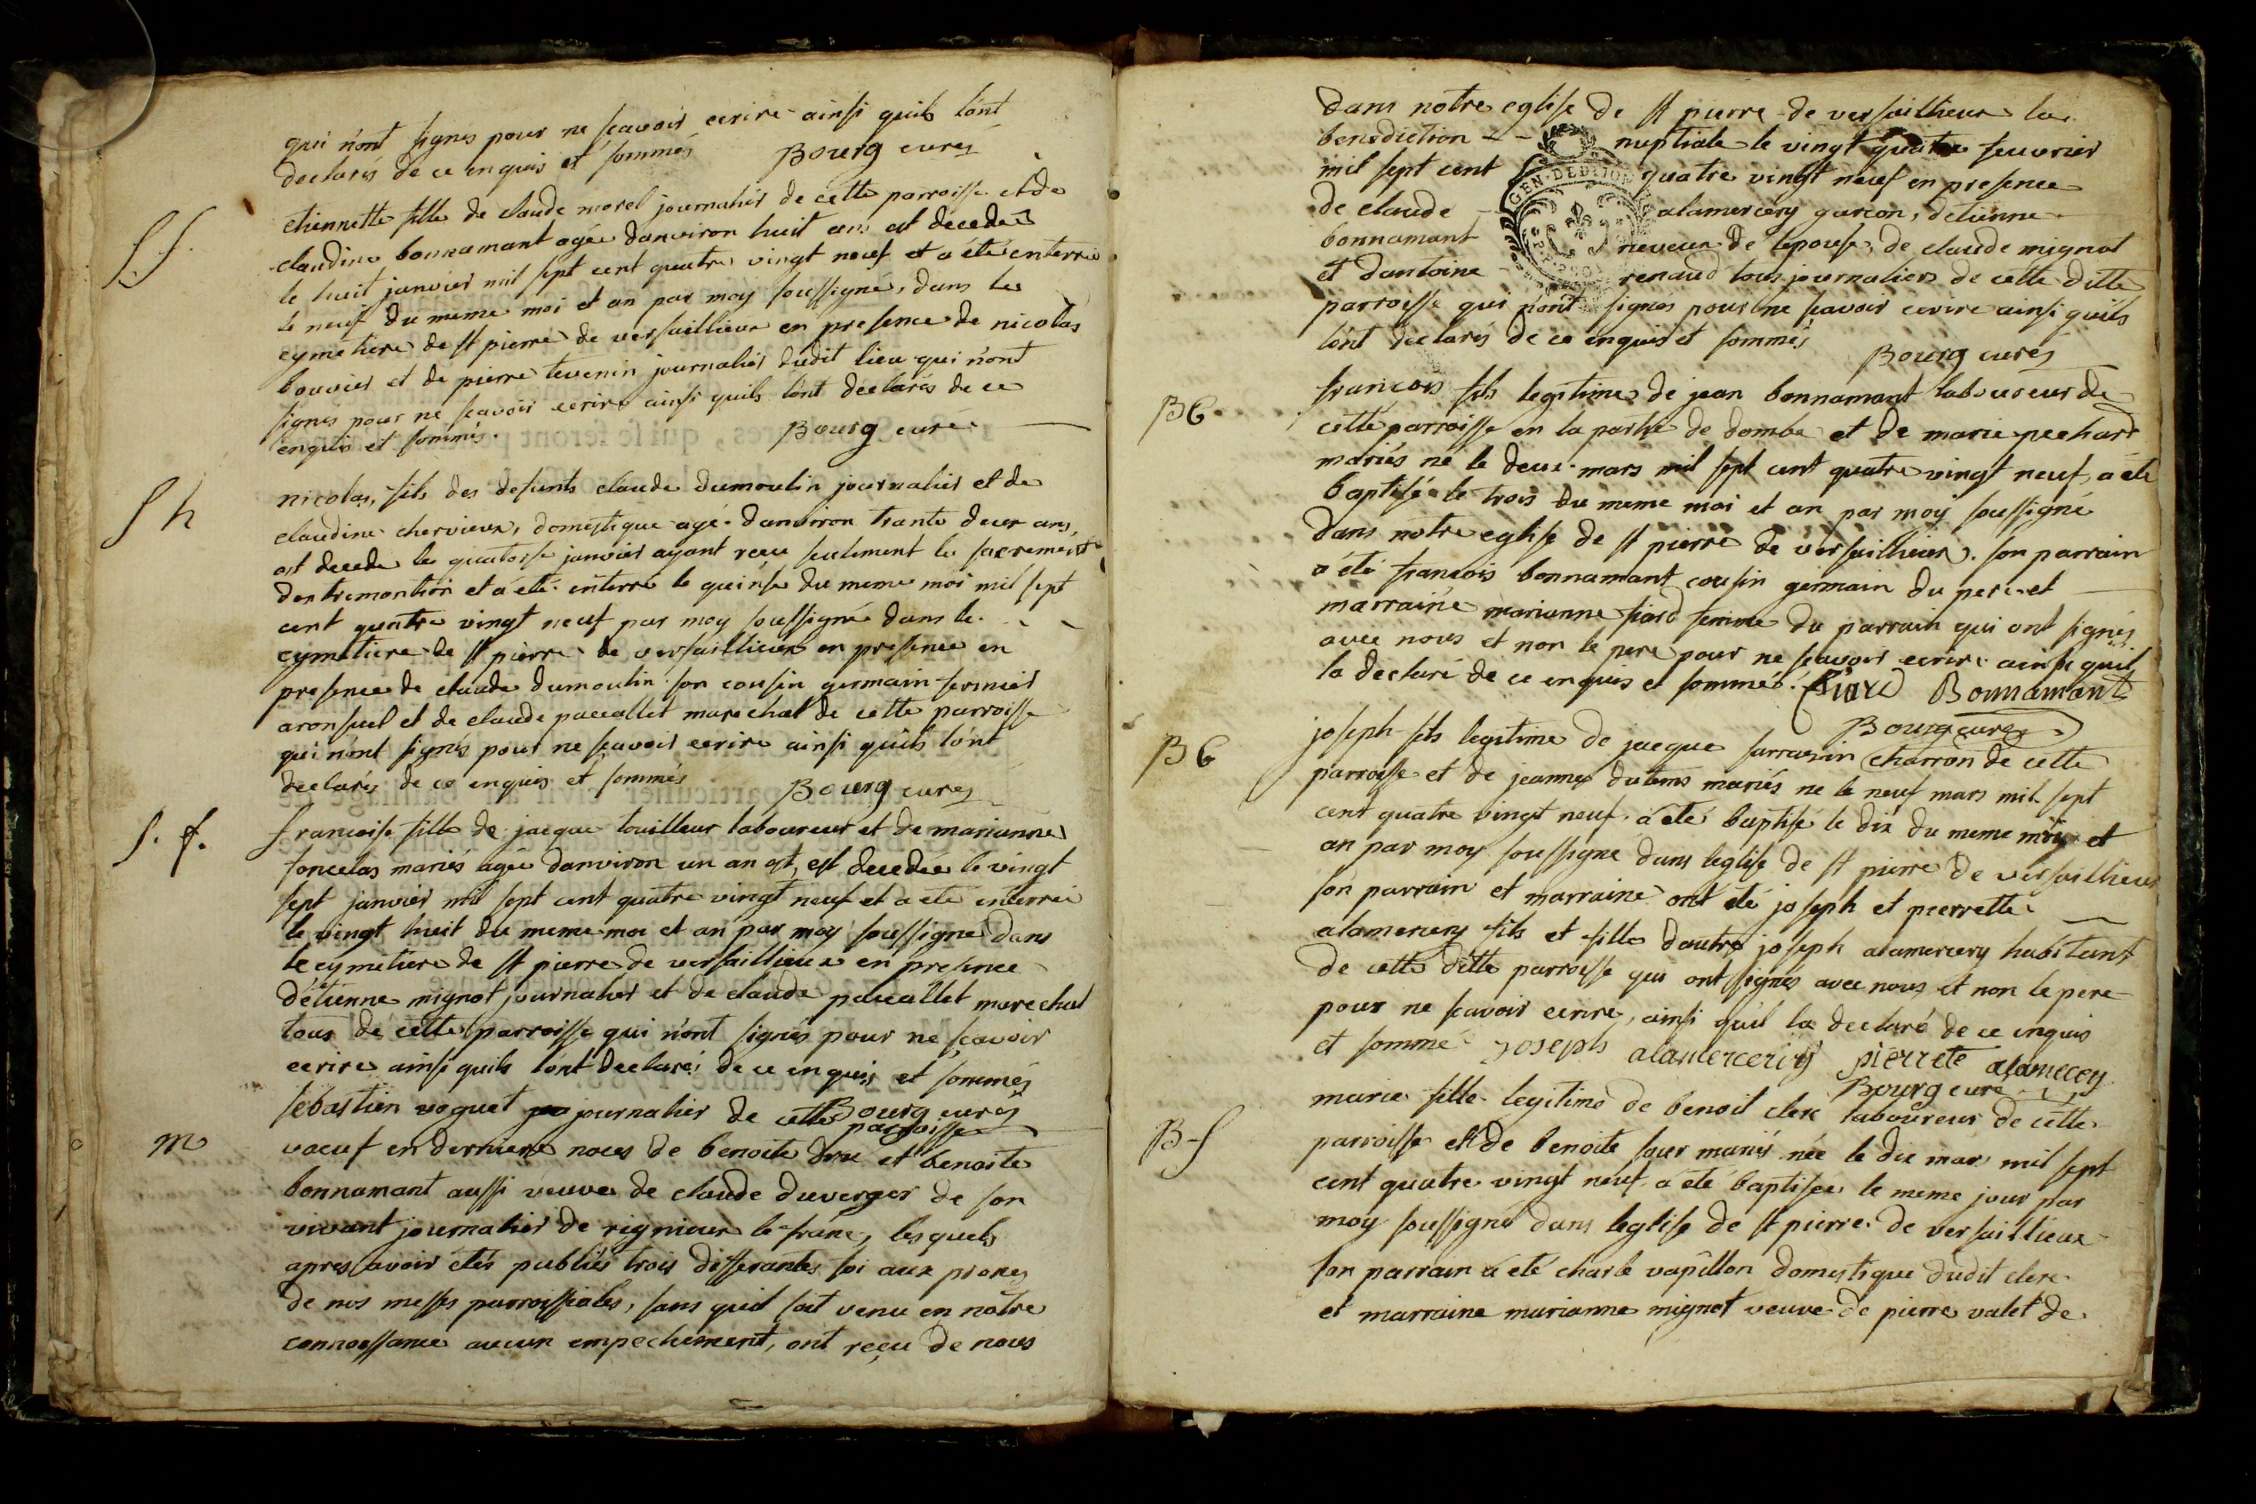 qui n'ont signes pour ne scavoir ecrire ainsi quils l'ont
declarés de ce enquis et sommés Bourg curé
S f.
etiennette fille de claude morel journalier de cette parroisse et de
claudine bonnamant agée danviron huit ans est decedeé
le huit janvier mil sept cent quatre vingt neuf et a été enterrée
le neuf du meme moi et an par moy soussigné, dans le
cymetiere de st pierre de versaillieux en presence de nicolas
bouvier et de pierre tevenin journalier dudit lieu qui n'ont
signes pour ne scavoir ecrire ainsi quils lont declarés de ce
enquis et sommés. Bourg curé
S h
nicolas, fils des defunts claude dumoulin journalier et de
claudine chervieux, domestique agé danviron trante deux ans,
est decede le quatorse janvier ayant reçu seulement le sacrement
dextremontion et a été enterré le quinse du meme moi mil sept
cent quatre vingt neuf par moy soussigné dans le
cymetiere de st pierre de versaillieux en presence en
presence de claude dumoulin son cousin germain fermier
a ronsuel et de claude paccallet marechal de cette parroisse
qui n'ont signés pour ne scavoir ecrire ainsi quils lont
declarés de ce enquis et sommés Bourg curé
S. f.
francoise fille de jacque touilleur laboureur et de marianne
foncelas mariés agée danviron un an est, est decedée le vingt
sept janvier mil sept cent quatre vingt neuf et a été enterrée
le vingt huit du meme moi et an par moy soussigné dans
le cymetiere de st pierre de versaillieux en presence
d'étienne mignot journalier et de claude paccallet marechal
tous de cette parroisse qui n'ont signés pour ne scavoir
ecrire ainsi quils l'ont declarés de ce enquis et sommés
Bourg curé
m
sebastien voguet journalier de cette parroisse
vaeuf en derniere noces de benoite drue et benoite
bonnamant aussi veuve de claude duverger de son
vivant journalier de rignieux le franc, lesquels
apres avoir étés publiés trois differantes foi aux prones
de nos messes parroissiales, sans quil soit venu en notre
connoissance aucun empechement, ont reçu de nous
dans notre eglise de st pierre de versaillieux la
benediction - - nuptiale le vingt quatre feuvrier
mil sept cent quatre vingt neuf en presence
de claude alamercery garcon, detienne
bonnamant neveux de lepouse, de claude mignot
et dantoine renaud tous journaliers de cette ditte
GEN. DED
parroisse qui n'ont signes pour ne scavoir ecrire ainsi quils
lont declarés de ce enquis et sommés Bourg curé
B G
francois fils legitime de jean bonnamant laboureur de
cette parroisse en la partie de dombe et de marie pechard
mariés né le deux mars mil sept cent quatre vingt neuf, a été
baptisé le trois du meme moi et an par moy soussigné
dans notre eglise de st pierre de versaillieux. son parrain
a été francois bonnamant cousin germain du pere et
marraine marianne fiard femme du parrain qui ont signés
avec nous et non le pere pour ne scavoir ecrire ainsi quil
la declaré de ce enquis et sommé. fiard Bonnamant
Bourg curé
B G
joseph fils legitime de jacque sarrasin charron de cette
parroisse et de jeanne dutems mariés ne le neuf mars mil sept
cent quatre vingt neuf. a été baptisé le dix du meme moy et
an par moy soussigne dans leglise de st pierre de versaillieux
son parrain et marraine ont été joseph et pierrette
alamercery fils et fille d'autre joseph alamercery habitant
de cette ditte parroisse qui ont signés avec nous et non le pere
pour ne scavoir ecrire, ainsi quil la declaré de ce enquis
et sommé joseph alamercery pierrete alamecey
Bourg curé
B f
marie fille legitime de benoit clerc laboureur de cette
parroisse et de benoite four mariés née le dix mars mil sept
cent quatre vingt neuf a été baptisée le meme jour par
moy soussigné dans leglise de st pierre de versaillieux
son parrain a été charle vapillon domestique dudit clerc
et marraine marianne mignot veuve de pierre valet de